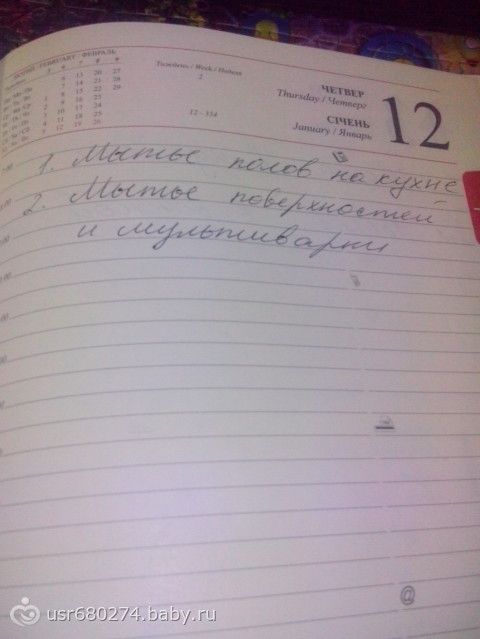 ЛЮТИЙ / FEBRUARY / ФЕВРАЛЬ
6 13 20 27
7 14 21 28
1 8 15 22 29
2 9 16 23
3 10 17 24
4 11 18 25
5 12 19 26
Тиждень / Week / Неделя
2
12 - 354
ЧЕТВЕР
Thursday / Четверг
СІЧЕНЬ
January / Январь
12
1. Мытье полов на кухне
2. Мытье поверхностей
и мультиварки
@
usr680274.baby.ru